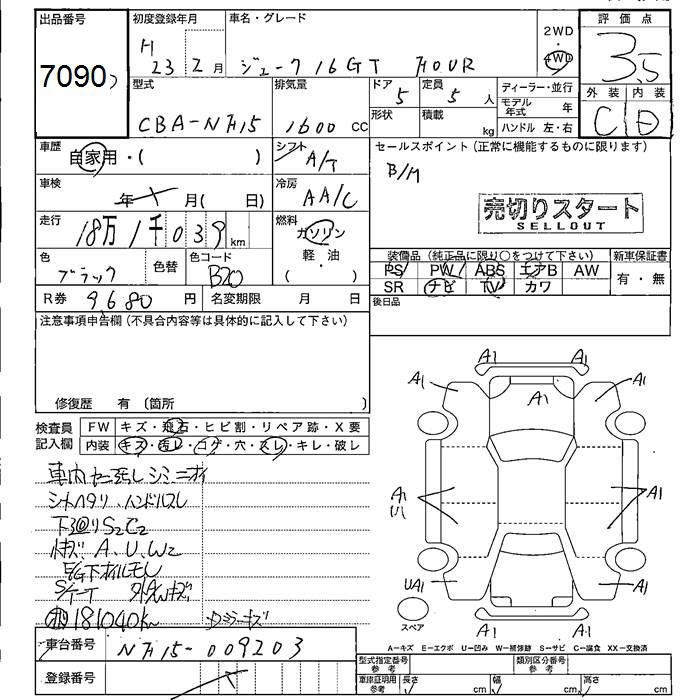 出品番号
7090
初度登録年月
H 23年 2月
車名・グレード
ジューク 16GT FOUR
2WD
・
4WD
評価点
3.5
外装 内装
C D
型式
CBA-NF15
排気量
1600 CC
ドア
5
形状
定員
5 人
積載
kg
ディーラー・並行
モデル年式 年
ハンドル 左・右
車歴
自家用・( )
シフト
A/T
セールスポイント(正常に機能するものに限ります)
B/M
売切りスタート
SELLOUT
車検
年 月( 日)
冷房
AA/C
走行
18万1千039 km
燃料
ガソリン
軽・油
( )
色
ブラック
色替
色コード
B20
装備品(純正品に限り○をつけて下さい)
PS PW ABS エアB AW
SR ナビ TV カワ
新車保証書
有・無
R券 9680 円
名変期限 月 日
後日品
注意事項申告欄(不具合内容等は具体的に記入して下さい)
修復歴 有 〔箇所 〕
検査員記入欄
FW キズ・飛石・ヒビ割・リペア跡・X要
内装 キズ・汚レ・コゲ・穴・スレ・キレ・破レ
シートヘタリ、ハンドルスレ
S2C2
A、U、W2
E/G下オイルモレ
181040km
ドラミラーキズ
車台番号 NF15-009203
登録番号
A1 A1
A1 A1 A1
A1 A1
UA1 A1
スペア
A1 A1
A-キズ E-エクボ U-凹み W-補修跡 S-サビ C-腐食 XX-交換済
型式指定番号 参考
類別区分番号 参考
車庫証明用 参考
長さ cm 幅 cm 高さ cm